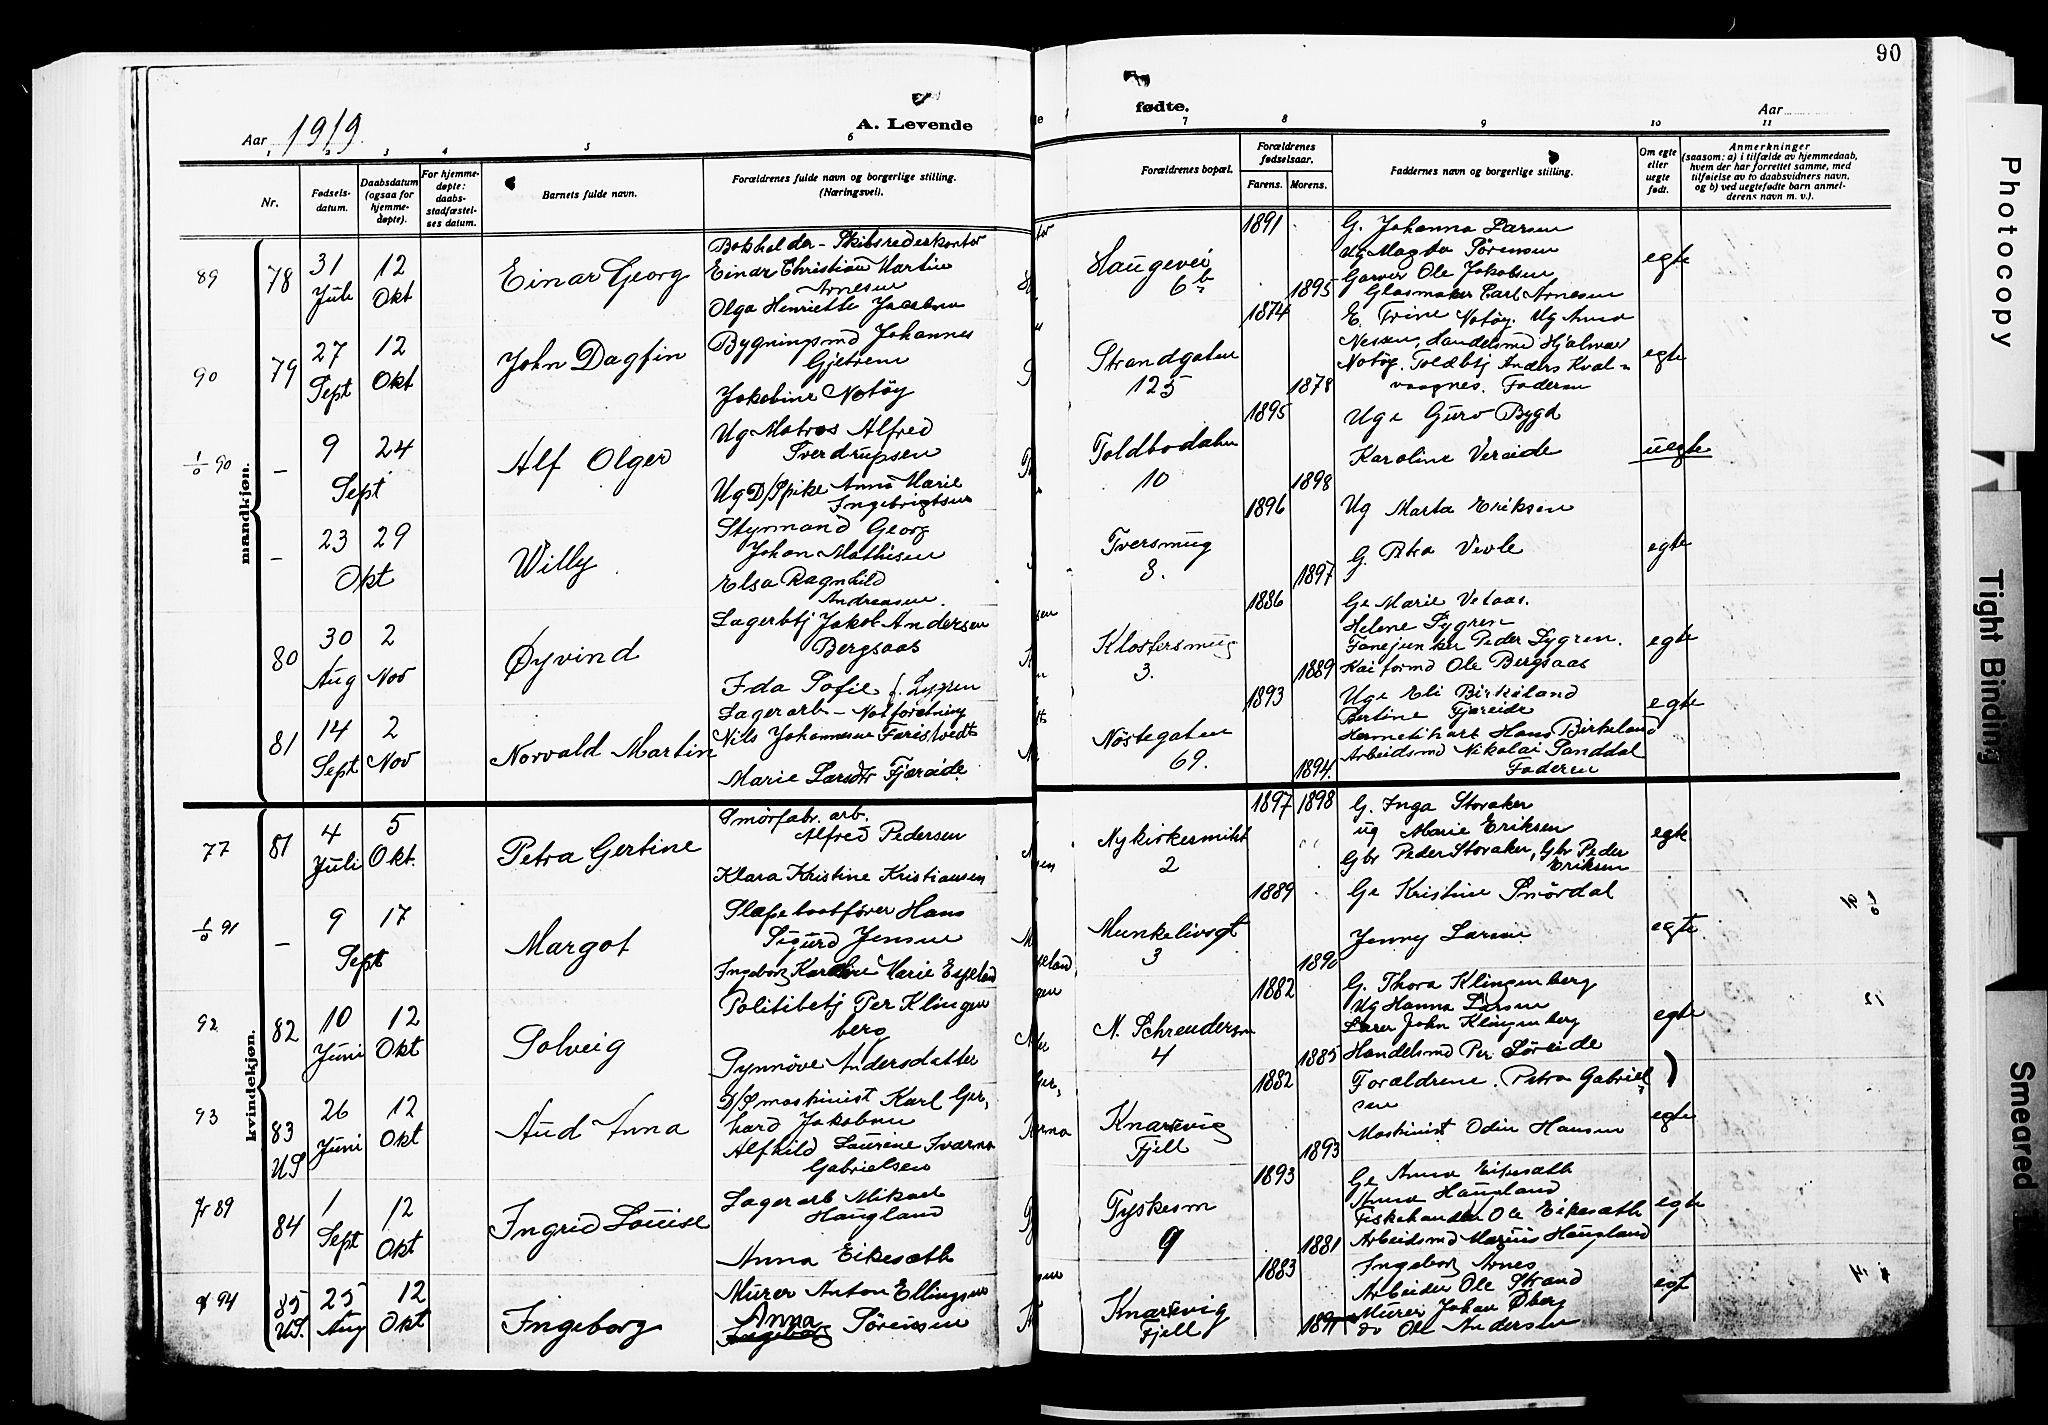 90
Aar 1919.
A. Levende
fødte.
Aar
1 2 3 4 5 6
7 8 9 10 11
Nr.
Fødsels-
datum.
Daabsdatum
(ogsaa for
hjemme-
døpte).
For hjemme-
døpte:
daabs-
stadfæstel-
ses datum.
Barnets fulde navn.
Forældrenes fulde navn og borgerlige stilling.
(Næringsvei).
Forældrenes bopæl.
Forældrenes
fødselsaar.
Farens. Morens.
Faddernes navn og borgerlige stilling.
Om egte
eller
uegte
født.
Anmerkninger
(saasom: a) i tilfælde av hjemmedaab,
hvem der har forrettet samme, med
tilføielse av to daabsvidners navn,
og b) ved uegtefødte barn anmel-
derens navn m. v.).
mandkjøn.
89 78 31 Juli 12 Okt
Einar Georg
Bokholder - Skibsrederkontor
Einar Christian Martin
Arnesen
Olga Henriette Jacobsen
Haugevei
6b
1891
1895
G. Johanna Larsen
Ug Magda Sørensen
Garver Ole Jakobsen
Glasmaker Carl Arnesen
egte
90 79 27 Sept 12 Okt
John Dagfin
Bygningsmd Johannes
Gjetrem
Jakobine Notøy
Strandgaten
125
1874
1878
E. Trine Notøy. Ug Anna
Nessen, Handelsmd Hjalmar
Notøy. Toldbtj Anders Kval-
vaagnes. Faderen
egte
1/0 90 - 9 24 Sept
Alf Olger
Ug Matros Alfred
Sverdrupsen
Ug D/Spike Anna Marie
Ingebrigtsen
Toldbodalm
10
1895
1898
Uge Guro Bygd
Karoline Veraide
uegte
- 23 29 Okt
Willy
Styrmand Georg
Johan Mathisen
Elsa Ragnhild
Andreasen.
Tversmug
3.
1896
1897
Ug Marta Eriksen
G. Petra Vevle
egte
80 30 Aug 2 Nov
Øyvind
Lagerbtj Jakob Andersen
Bergsaas
Ida Sofie f. Lygren
Klostersmug
3.
1886
1889
Ge Marie Vetaas.
Helene Lygren
Fanejunker Peder Lygren.
Kaiformd Ole Bergsaas
egte
81 14 Sept 2 Nov
Norvald Martin
Lagerarb - Notforetning
Nils Johannesen Farestvedt
Marie Larsdtr Fjæreide
Nöstegaten
69.
1893
1894.
Uge Eli Birkeland
Bertine Fjæreide
Hermetikarb Hans Birkeland
Arbeidsmd Nikolai Sanddal
Faderen
egte
kvindekjøn.
77 81 4 Juli 5 Okt.
Petra Gertine
Smörfabr. arb.
Alfred Pedersen
Klara Kristine Kristiansen
Nykirkesmilt
2
1897 1898
G. Inga Storaker
ug Marie Eriksen
Gbr Peder Storaker, Gbr Peder
Eriksen
egte
1/0 91 - 9 17 Sept
Margot
Slæpebaatfører Hans
Sigurd Jensen
Ingeborg Karoline Marie Espeland
Munkelivsgt
3
1889
1890
Ge Kristine Smördal
Jenny Larsen
egte
92 82 10 Juni 12 Okt
Solveig
Politibetj Per Klingen
berg
Synnöve Andersdatter
N. Schreudersm
4
1882
1885
G. Thora Klingenberg
Ug Hanna Larsen
Lærer John Klingenberg
Handelsmd Per Söreide
egte
93 83 US 26 Juni 12 Okt
Aud Anna
D/S maskinist Karl Ger,
hard Jakobsen
Alfhild Laurene Ivarna
Gabrielsen
Knarrevig
Fjell
1882
1893
Forældrene. Petra Gabriel
sen
Maskinist Odin Hansen
egte
fr 89 84 1 Sept 12 Okt
Ingrid Louise
Lagerarb Mikael
Haugland
Anna Eikesæth
Tyskesm
9
1893
1881
Ge Anna Eikesæth
Anna Haugland
Fiskehandler Ole Eikesæth
Arbeidsmd Magnus Haugland
egte
94 85 US. 25 Aug 12 Okt
Ingeborg
Murer Anton Ellingsen
Anna
Ingeborg Sörensen
Knarrevig
Fjell
1883
1891
Ingeborg Arnes
Arbeider Ole Strand
Murer Johan Öberg
do Ole Andersen
egt
Photocopy
Tight Binding
Smeared